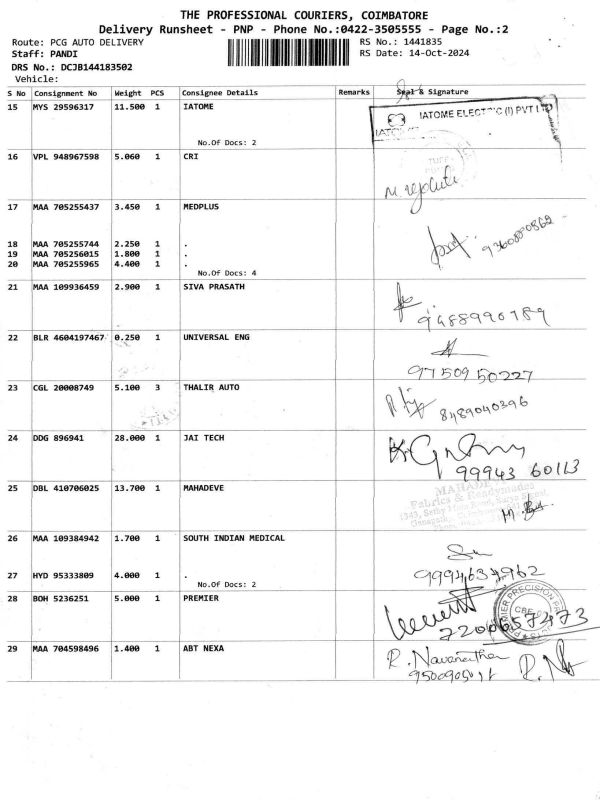 THE PROFESSIONAL COURIERS, COIMBATORE
Delivery Runsheet - PNP - Phone No.:0422-3505555 - Page No.:2
Route: PCG AUTO DELIVERY RS No.: 1441835
Staff: PANDI RS Date: 14-Oct-2024
DRS No.: DCJB144183502
Vehicle:
S No Consignment No Weight PCS Consignee Details Remarks Seal & Signature
15 MYS 29596317 11.500 1 IATOME
IATOME ELECTRIC (I) PVT LTD
IATOME
No.Of Docs: 2
16 VPL 948967598 5.060 1 CRI
17 MAA 705255437 3.450 1 MEDPLUS
9360890862
18 MAA 705255744 2.250 1 .
19 MAA 705256015 1.800 1 .
20 MAA 705255965 4.400 1 .
No.Of Docs: 4
21 MAA 109936459 2.900 1 SIVA PRASATH
9488990789
22 BLR 4604197467 0.250 1 UNIVERSAL ENG
97509 50227
23 CGL 20008749 5.100 3 THALIR AUTO
8489040396
24 DDG 896941 28.000 1 JAI TECH
99943 60113
25 DBL 410706025 13.700 1 MAHADEVE
Fabrics & Readymades
26 MAA 109384942 1.700 1 SOUTH INDIAN MEDICAL
9994634962
27 HYD 95333809 4.000 1 .
No.Of Docs: 2
28 BOH 5236251 5.000 1 PREMIER
PREMIER PRECISION
CBE
7200657473
29 MAA 704598496 1.400 1 ABT NEXA
R. Navanathan